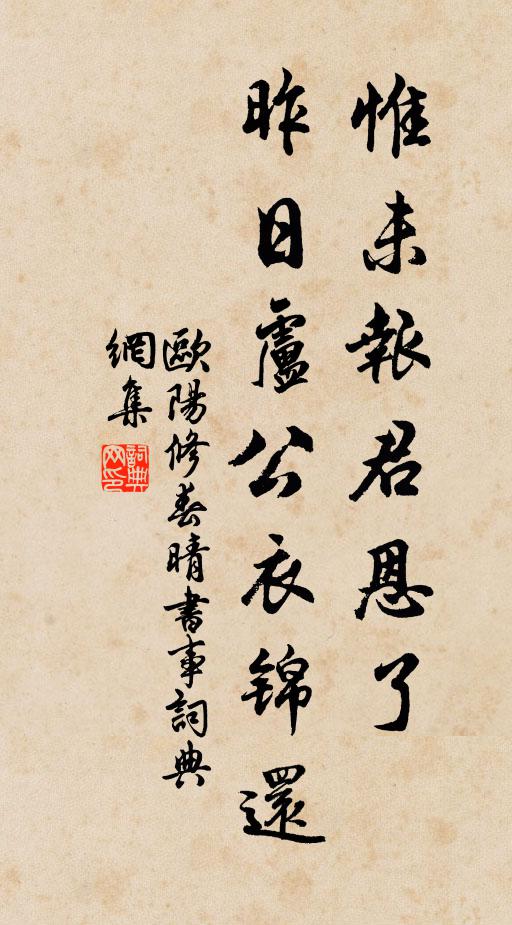 惟未報君恩了
昨日廬公衣錦還
歐陽修春晴書事詞典
網集
詞典
网印